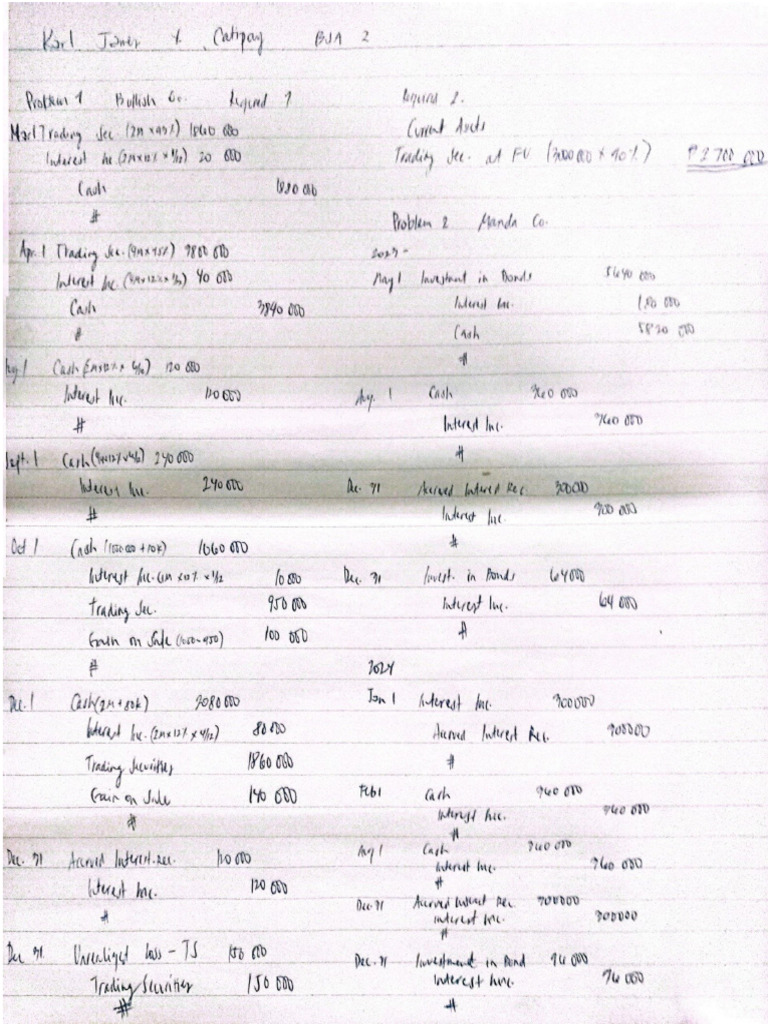 Karl James Y. Catipay BSA 2
Problem 1 Bullish Co. Required 1
Mar 1 Trading Sec. (2M x 93%) 1860 000
Interest Inc. (2M x 12% x 1/12) 20 000
Cash 1880 000
#
Apr. 1 Trading Sec. (4M x 95%) 3800 000
Interest Inc. (4M x 12% x 1/12) 40 000
Cash 3840 000
#
Aug. 1 Cash (2M x 12% x 6/12) 120 000
Interest Inc. 120 000
#
Sept. 1 Cash (4M x 12% x 6/12) 240 000
Interest Inc. 240 000
#
Oct 1 Cash (1050 000 + 10k) 1060 000
Interest Inc. (1M x 12% x 1/12 10 000
Trading Sec. 950 000
Gain on Sale (1050-950) 100 000
#
Dec. 1 Cash (2M + 80k) 2080 000
Interest Inc. (2M x 12% x 4/12) 80 000
Trading Securities 1860 000
Gain on Sale 140 000
#
Dec. 31 Accrued Interest Rec. 120 000
Interest Inc. 120 000
#
Dec 31. Unrealized loss - TS 150 000
Trading Securities 150 000
#
Required 2.
Current Assets
Trading Sec. at FV (3000 000 x 90%) ₱2 700 000
Problem 2 Manda Co.
2023 -
May 1 Investment in Bonds 5640 000
Interest Inc. 180 000
Cash 5820 000
#
Aug. 1 Cash 360 000
Interest Inc. 360 000
#
Dec. 31 Accrued Interest Rec. 300000
Interest Inc. 300 000
#
Dec. 31 Invest. in Bonds 64000
Interest Inc. 64 000
#
2024
Jan 1 Interest Inc. 300000
Accrued Interest Rec. 300000
#
Feb 1 Cash 360 000
Interest Inc. 360 000
#
Aug 1 Cash 360 000
Interest Inc. 360 000
#
Dec. 31 Accrued Interest Rec. 300000
Interest Inc. 300000
#
Dec. 31 Investment in Bond 96 000
Interest Inc. 96 000
#